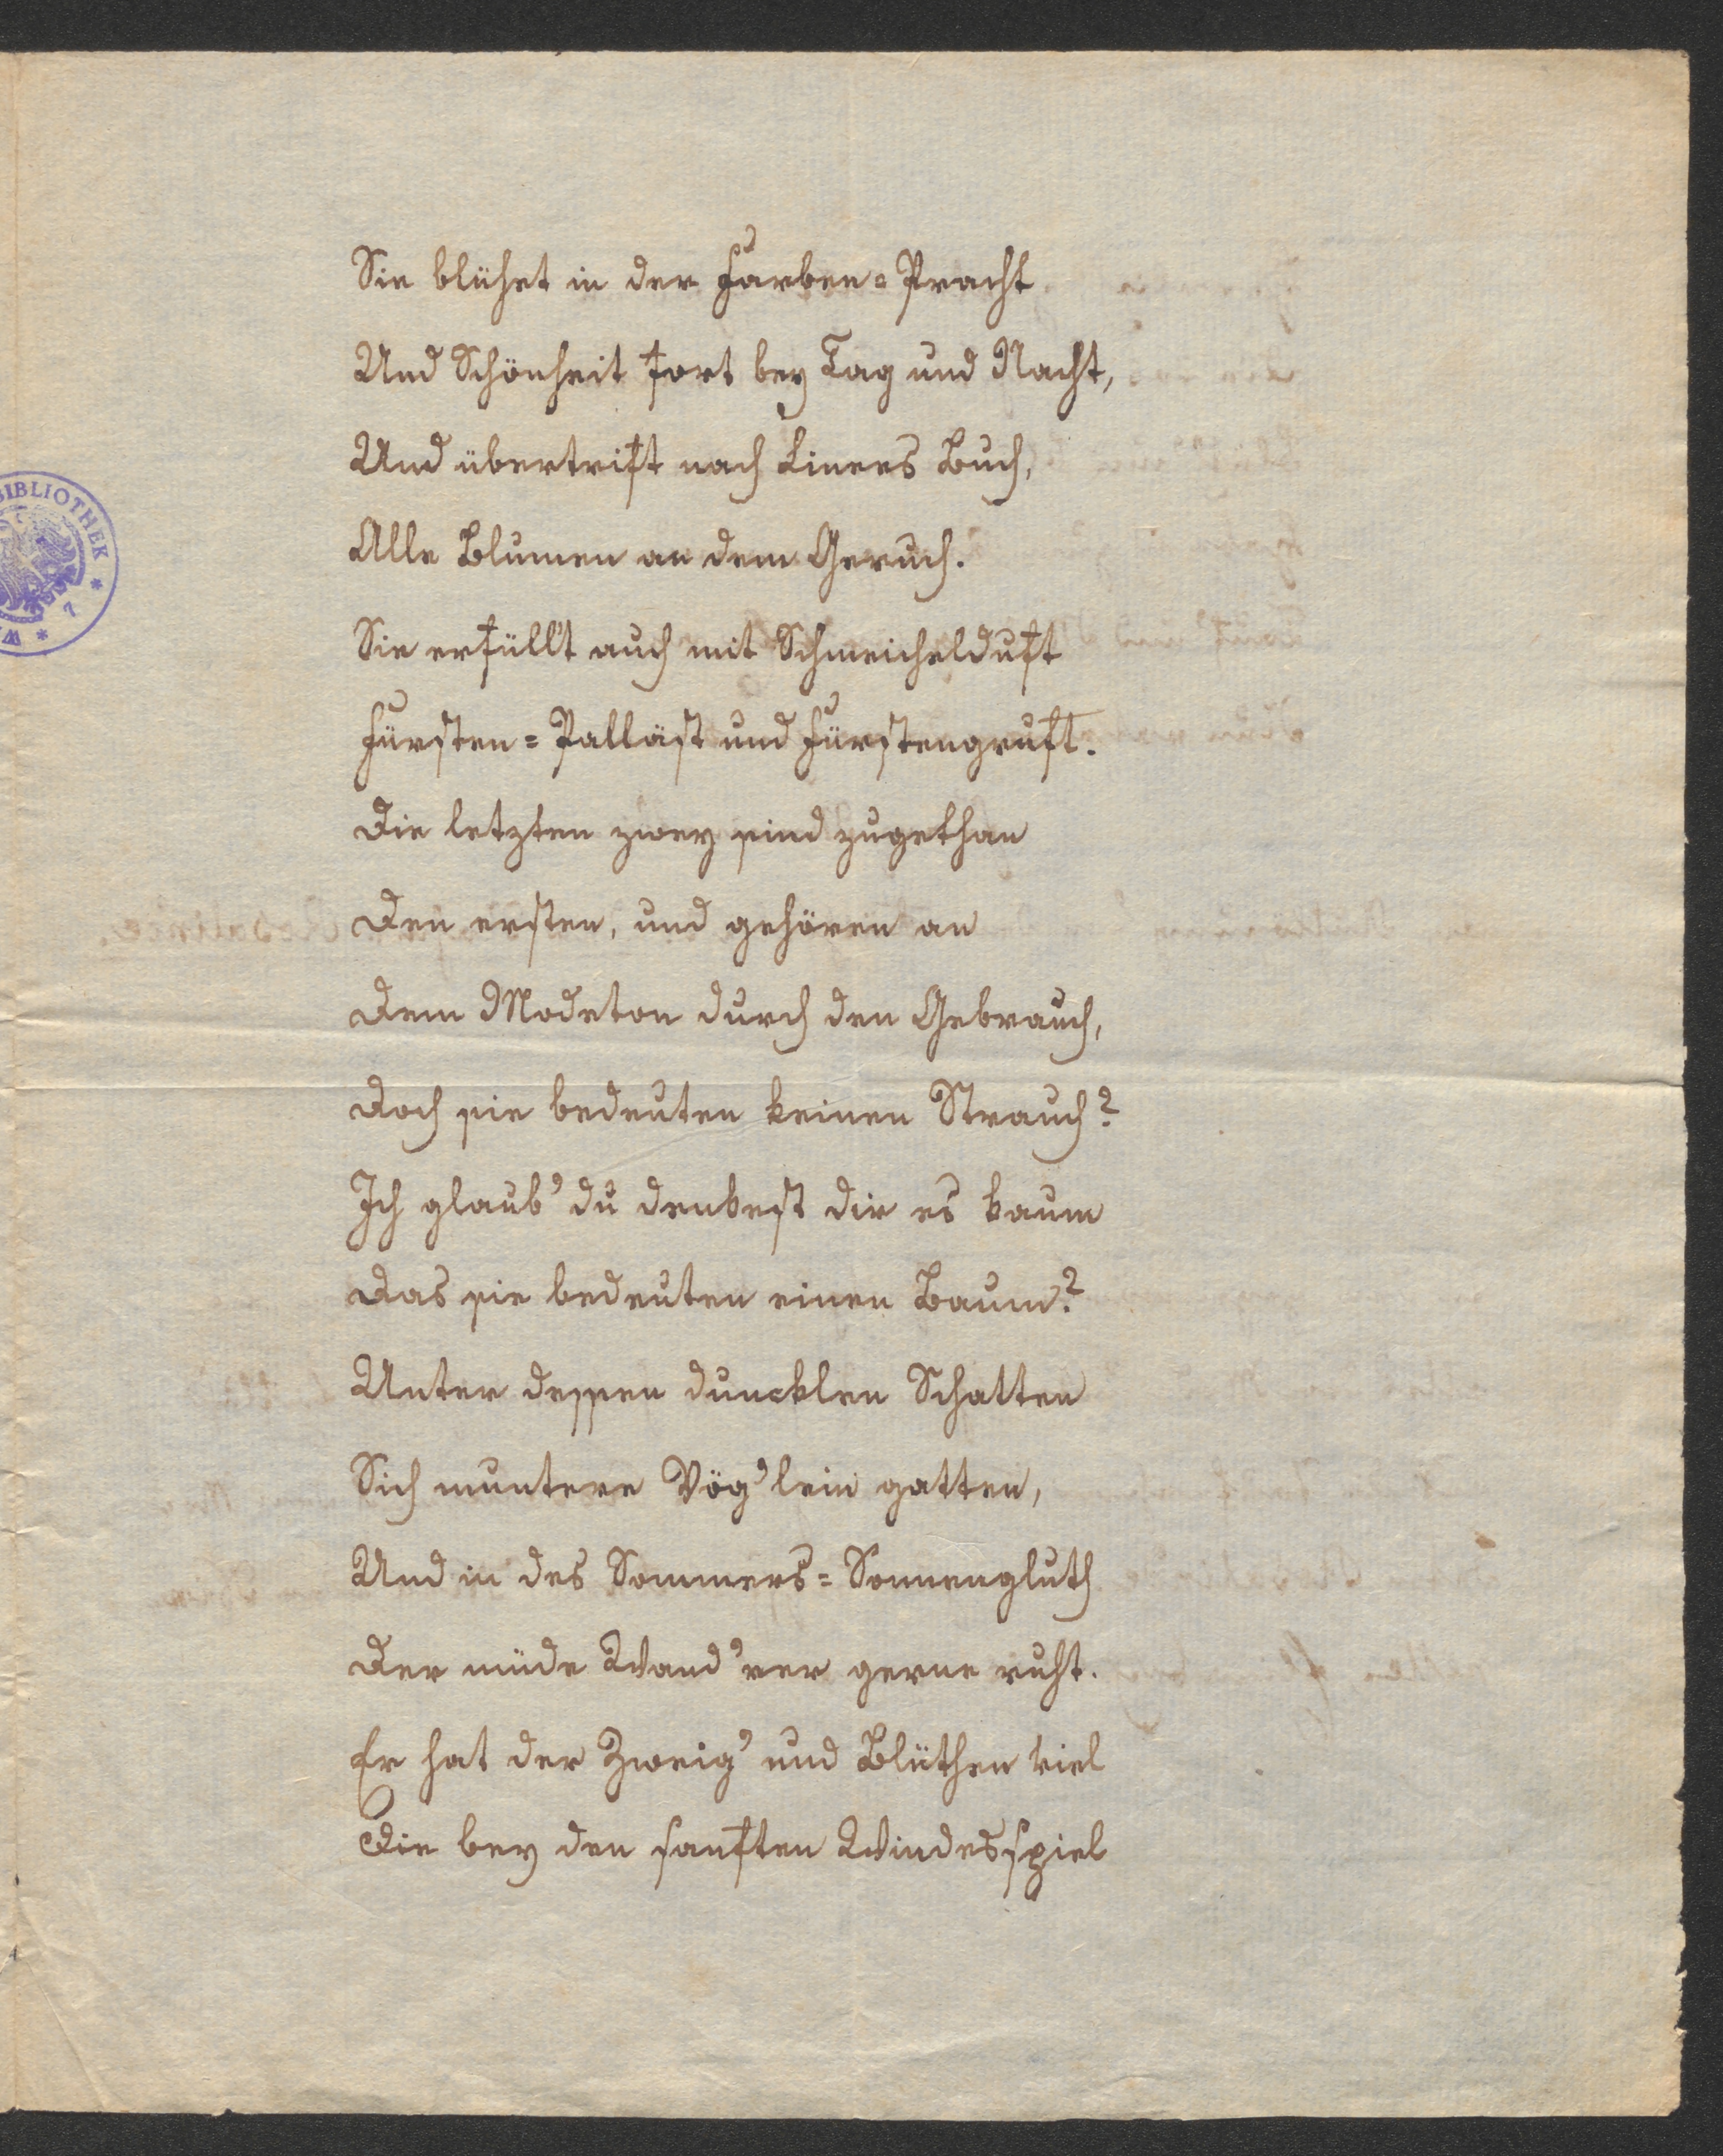 Sie blühet in der Farben=Pracht
Und Schönheit fort bey Tag und Nacht,
Und übertrift nach Linees Buch,
Alle Blumen an dem Geruch.
Sie erfüll't auch mit Schmeichelduft
Fürsten=Palläst und Fürstengruft.
Die letzten zwey sind zugethan
Den ersten, und gehören an
Dem Modeton durch den Gebrauch,
Doch sie bedeuten keinen Strauch?
Ich glaub' du denkest dir es kaum
Das sie bedeuten einen Baum?
Unter dessenduncklen Schatten
Sich muntere Vög'lein gatten,
Und in des Sommers=Sonnengluth
Der müde Wand'rer gerne ruht.
Er hat der Zweig' und Blüthen viel
Die bey den sanften Windesspiel
BIBLIOTHEK